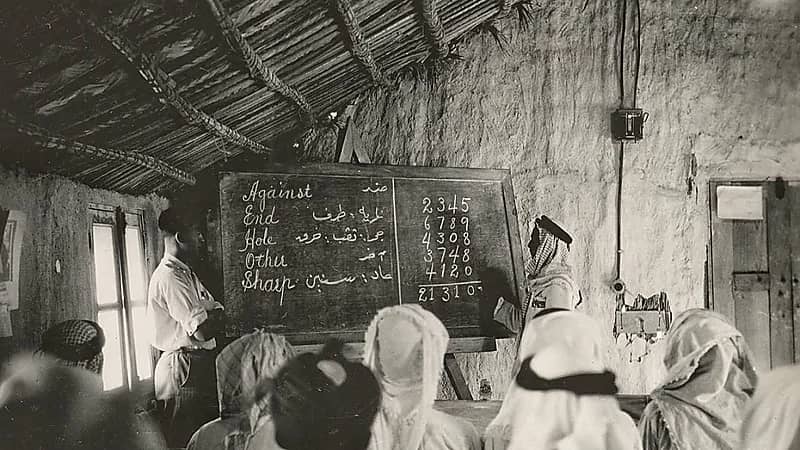 Against ضد
End نهاية : طرف
Hole : ثقب :
Other
Sharp حاد : سنين
2345
6789
4308
3748
4120
21310